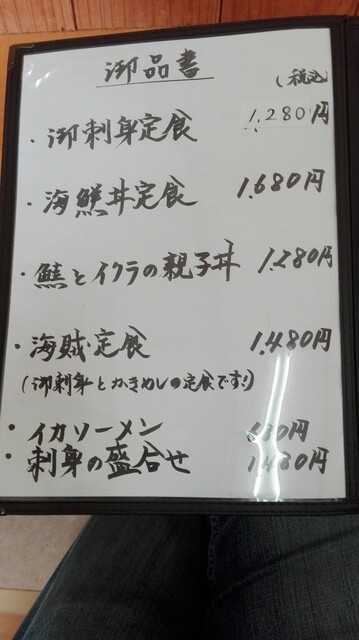 御品書
(税込)
・御刺身定食 1,280円
・海鮮丼定食 1,680円
・鮭とイクラの親子丼 1,280円
・海賊定食 1,480円
(御刺身とかきめしの定食です!)
・イカソーメン 円
・刺身の盛合せ 1,480円